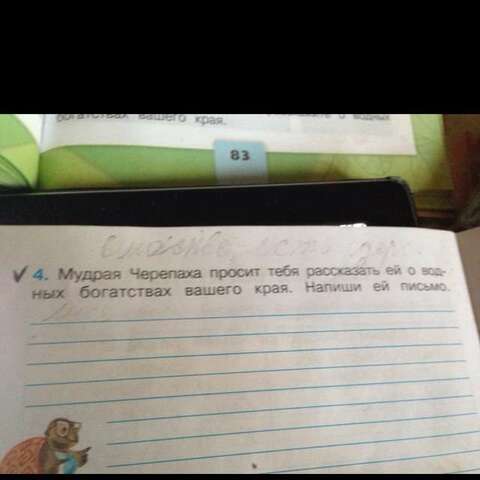 богатствах вашего края.
о водных
83
4. Мудрая Черепаха просит тебя рассказать ей о вод-
ных богатствах вашего края. Напиши ей письмо.